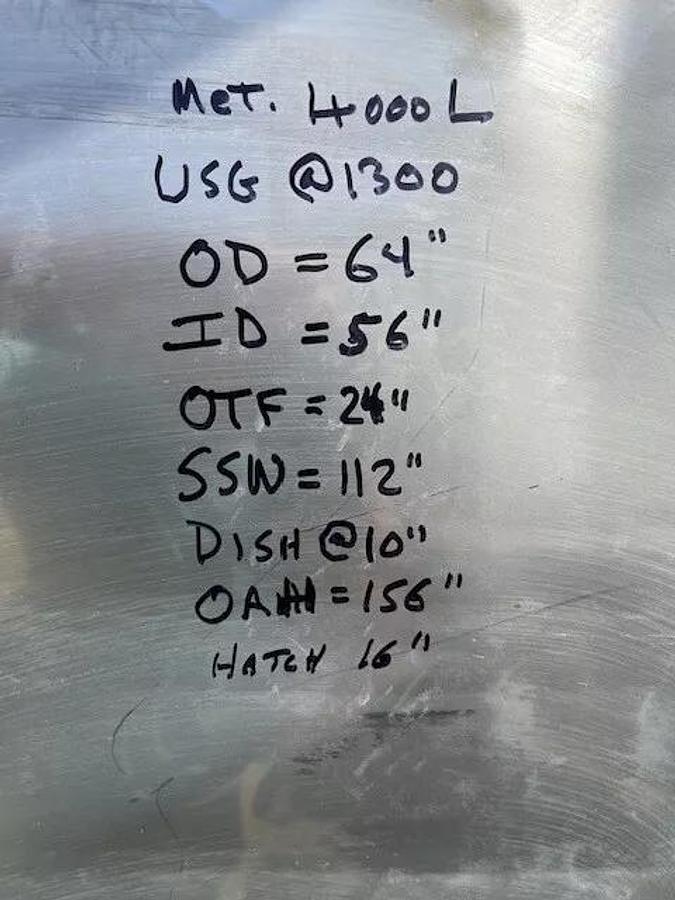 MeT. 4000 L
USG @1300
OD = 64"
ID = 56"
OTF = 24"
SSW = 112"
DISH @10"
OAH = 156"
HATCH 16"